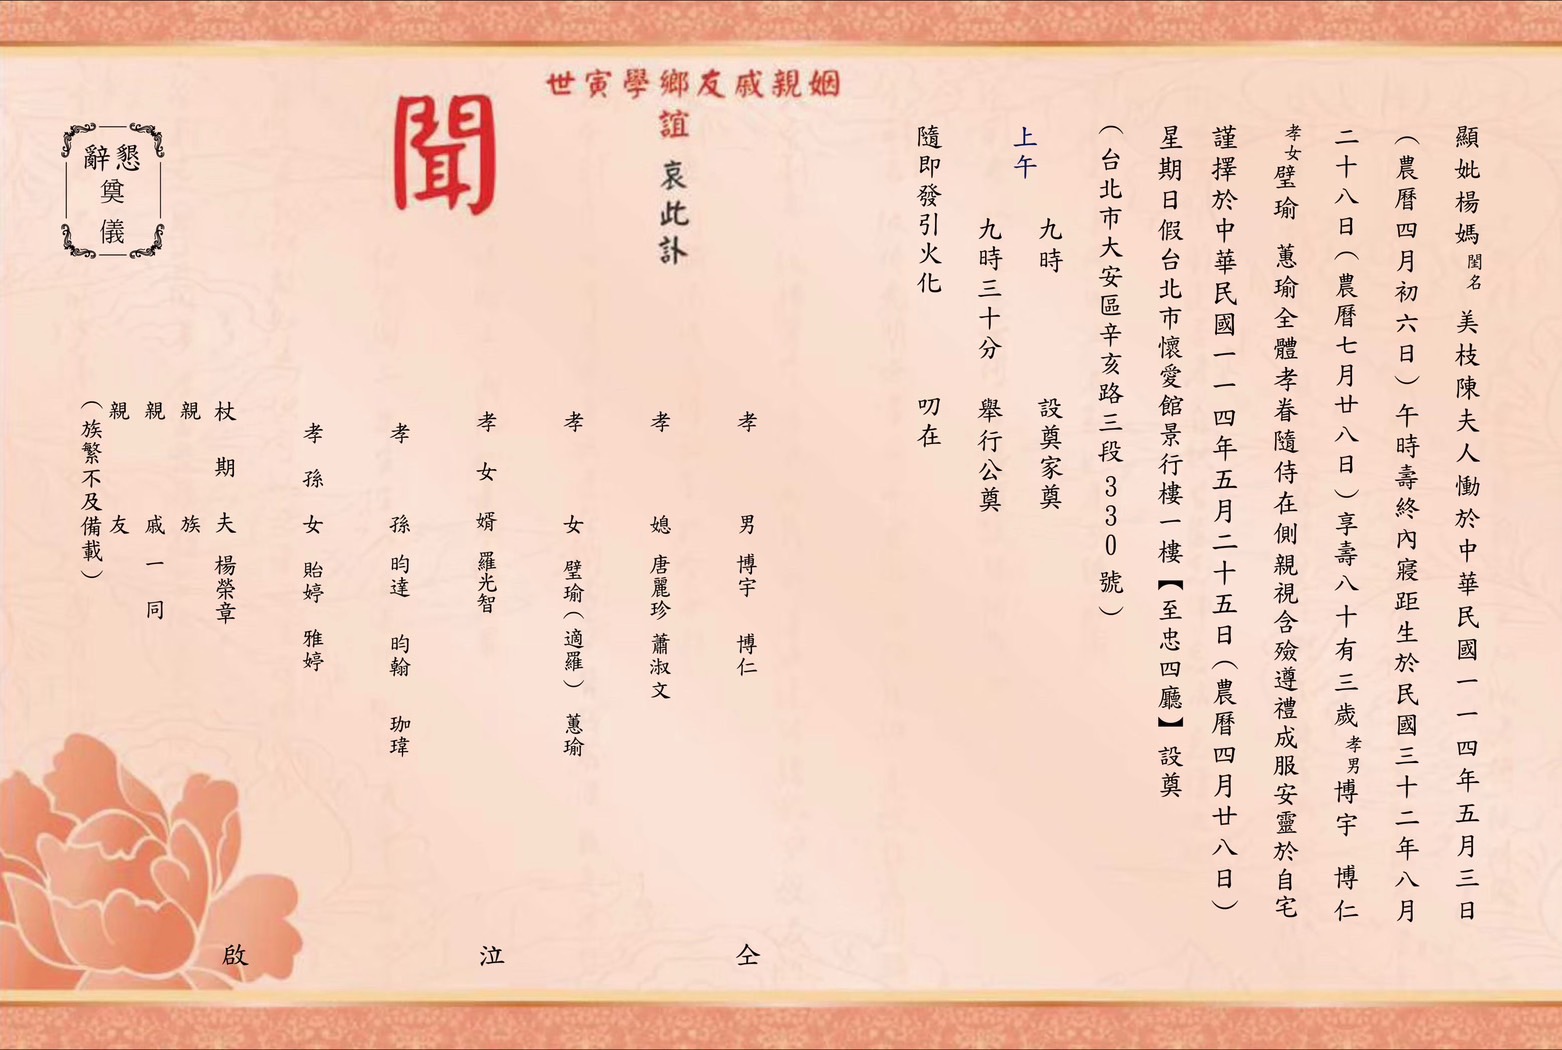 顯妣楊媽閨名美枝陳夫人慟於中華民國一一四年五月三日
（農曆四月初六日）午時壽終內寢距生於民國三十二年八月
二十八日（農曆七月廿八日）享壽八十有三歲孝男博宇　博仁
孝女璧瑜　蕙瑜全體孝眷隨侍在側親視含殮遵禮成服安靈於自宅
謹擇於中華民國一一四年五月二十五日（農曆四月廿八日）
星期日假台北市懷愛館景行樓一樓【至忠四廳】設奠
（台北市大安區辛亥路三段330號）
上午
九時　設奠家奠
九時三十分　舉行公奠
隨即發引火化　叨在
姻親戚友鄉學寅世
誼　哀此訃
聞
孝男　博宇　博仁
孝媳　唐麗珍　蕭淑文
孝女　璧瑜（適羅）　蕙瑜
孝女婿　羅光智
孝孫　昀達　昀翰　珈瑋
孝孫女　貽婷　雅婷
杖期夫　楊榮章
親族
親戚一同
親友
（族繁不及備載）
仝
泣
啟
懇辭
奠
儀